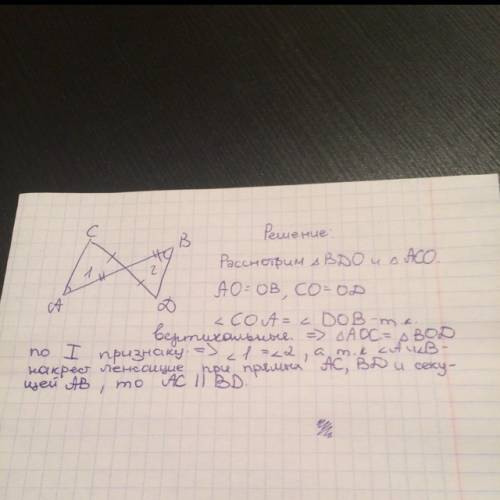 C
B
1
2
A
D
Решение:
Рассмотрим △BDO и △ACO.
AO=OB, CO=OD
∠COA=∠DOB-т.к.
вертикальные => △AOC=△BOD
по I признаку => ∠1=∠2, а т.к ∠A и ∠B-
накрест ленсащие при прямых AC, BD и секу-
щей AB, то AC || BD.